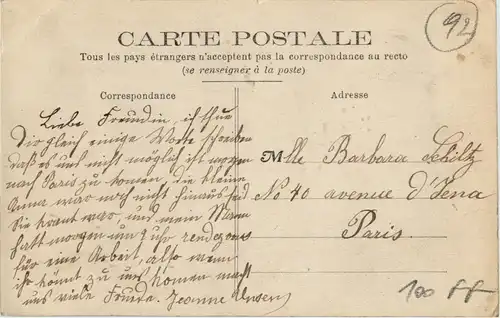 92
CARTE POSTALE
Tous les pays étrangers n'acceptent pas la correspondance au recto
(se renseigner à la poste)
Correspondance
Adresse
Liebe Freundin, ich thue
Dir gleich einige Worte schreiben
daß es uns nicht möglich ist morgen
nach Paris zu komen, die kleine
Anna war noch nicht hinaus seid
Sie krank war, und mein Mann
hatt morgen um 9 uhr rendezvous
für eine Arbeit, also wenn
ihr könnt zu uns komen macht
uns viele Freude. Jeanne
Mlle Barbara Schiltz
No 40 avenue d'Jena
Paris.
100 FF